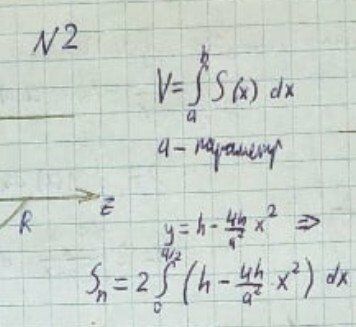 N2
V=∫ₐʰ S(x) dx
a - параметр
R z̄
y = h - 4h/a² x² ⇒
Sₙ = 2 ∫₀^(a/2) (h - 4h/a² x²) dx